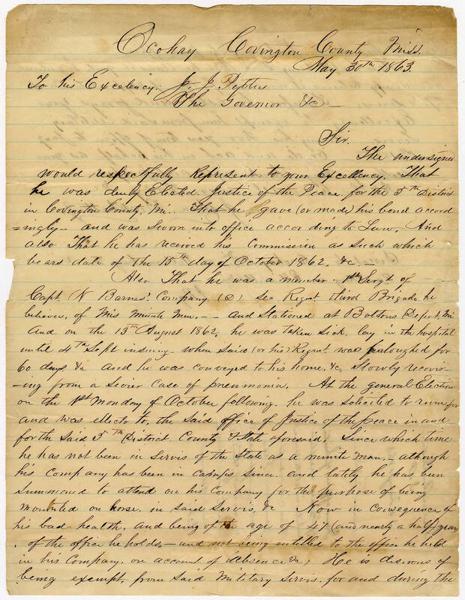 Ocohay Covington County Miss.
May 30th 1863.
To his Excelency. J. J. Pettus
The Governor &c —
Sir.
The undersigned
would respectfully Represent to your Excellency. That
he was duly Elected Justice of the Peace for the 5th District
in Covington County, Mi. That he gave (or made) his bond accord
-ingly — and was sworn into office according to Law. And
also That he has received his Commission as Such which
bears date of the 15th day of October 1862. &c
Also That he was a member 1st Sergt of
Capt. N Barnes' Company (C) Regnt third Brigade he
believes, of Miss Minute Men. — and Stationed at Boltons Depot Mi
And on the 15th August 1862, he was taken Sick, Lay in the hospital
until 4th Sept insuing when Said (or his) Regnt. was furloughed for
60 days &c And he was conveyed to his home, &c Slowly recover
-ing from a Sevier Case of pneumonia. At the general Election
on the 1st Monday of October following he was solicited to run for
and was elected to, the Said office of Justice of the Peace in and
for the Said 5th District County & State aforesaid. Since which time
he has not been in Servis of the State as a minute man — although
his Company has been in camps since and lately he has been
Summoned to attend on his Company for the purpose of being
mounted on horse in Said Servis, &c Now in consequence of
his bad health, and being of the age of 47 (and nearly a half) years
of the office he holds — and not being entitled to the office he held
in his Company on account of Absence &c, Hee is desirous of
being exempt, from Said Military Servis. for and during the